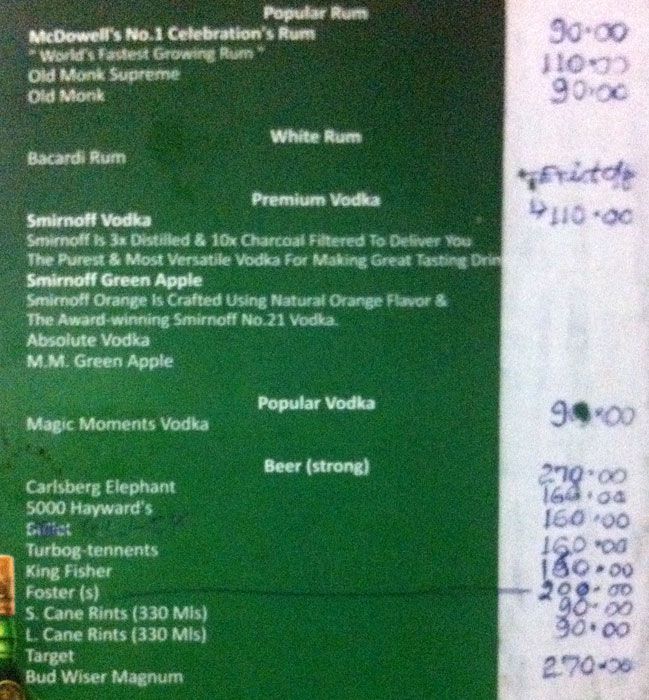 Popular Rum
McDowell's No.1 Celebration's Rum 90.00
"World's Fastest Growing Rum"
Old Monk Supreme 110.00
Old Monk 90.00
White Rum
Bacardi Rum
Premium Vodka
Smirnoff Vodka 110.00
Smirnoff Is 3x Distilled & 10x Charcoal Filtered To Deliver You
The Purest & Most Versatile Vodka For Making Great Tasting Drin
Smirnoff Green Apple
Smirnoff Orange Is Crafted Using Natural Orange Flavor &
The Award-winning Smirnoff No.21 Vodka.
Absolute Vodka
M.M. Green Apple
Popular Vodka
Magic Moments Vodka 90.00
Beer (strong)
Carlsberg Elephant 270.00
5000 Hayward's 160.00
160.00
Turbog-tennents 160.00
King Fisher 180.00
Foster (s) 200.00
S. Cane Rints (330 Mls) 90.00
L. Cane Rints (330 Mls) 90.00
Target
Bud Wiser Magnum 270.00